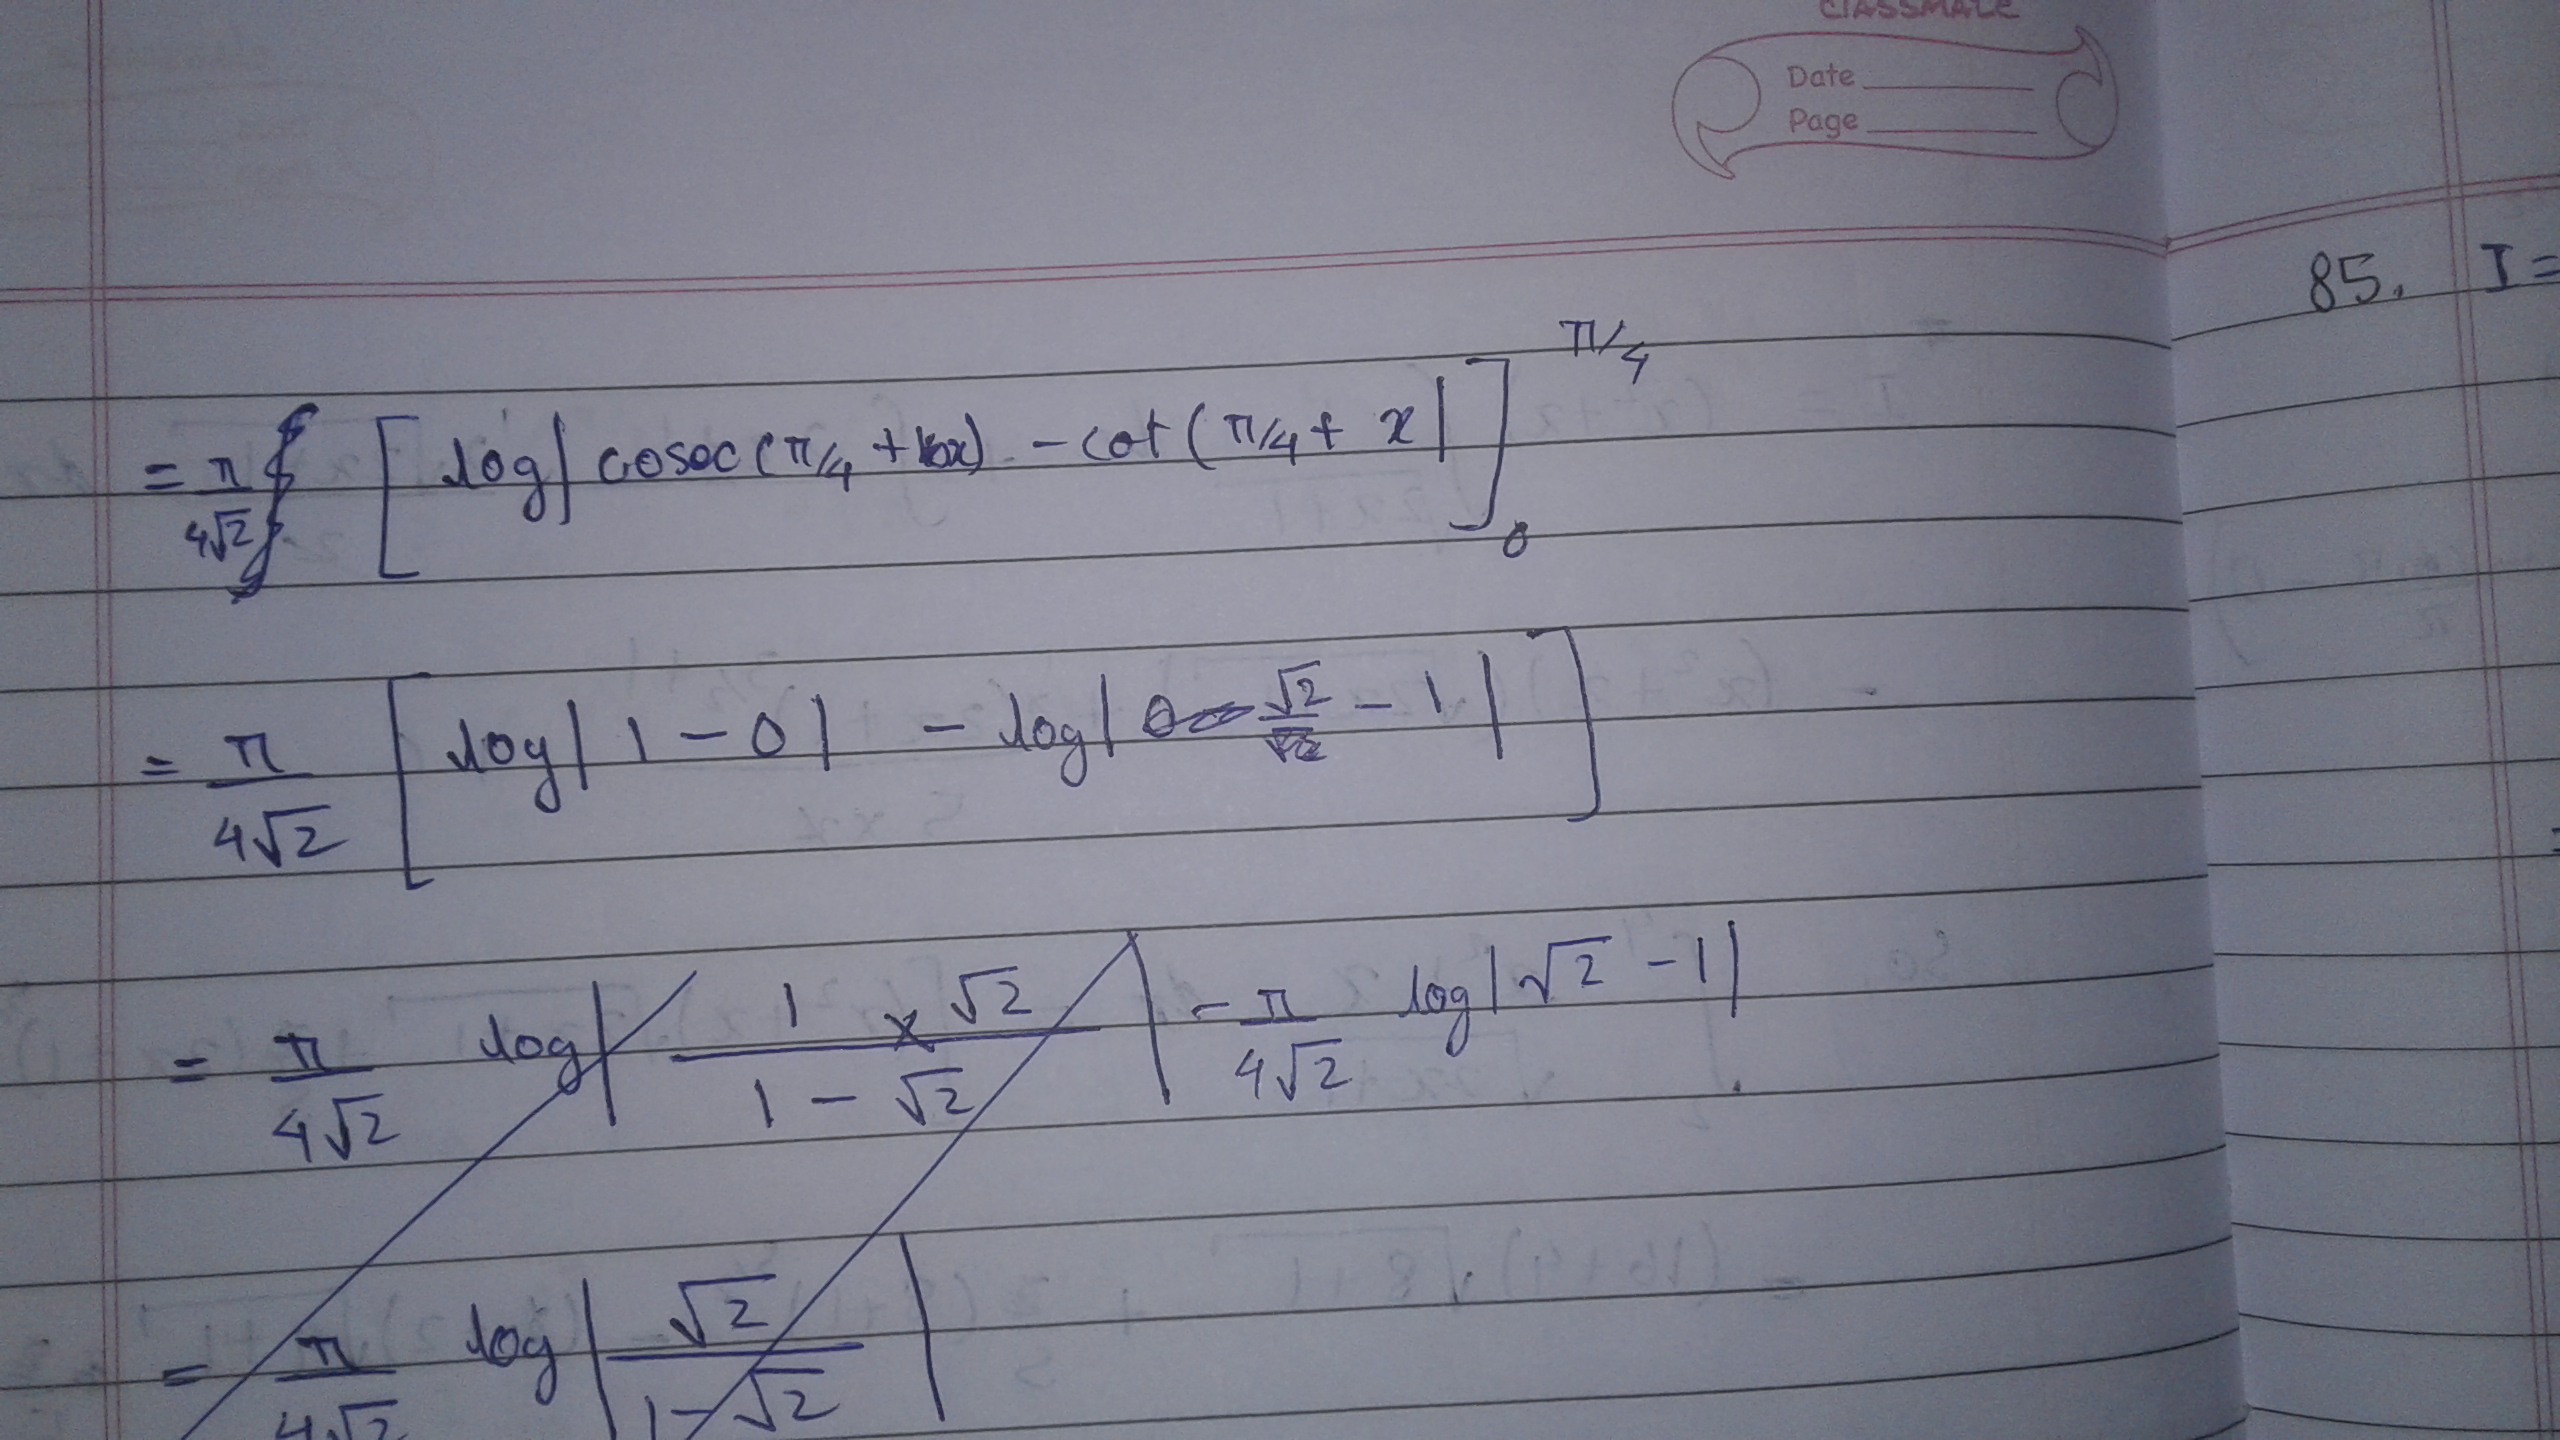 classmate
Date
Page
85. I =
= π/4√2 [log|cosec(π/4 + x) - cot(π/4 + x|]₀^π/4
= π/4√2 [log|1 - 0| - log|√2 - 1|]
= π/4√2 log|1 × √2/1 - √2| - π/4√2 log|√2 - 1|
= π/4√2 log|√2/1 - √2|